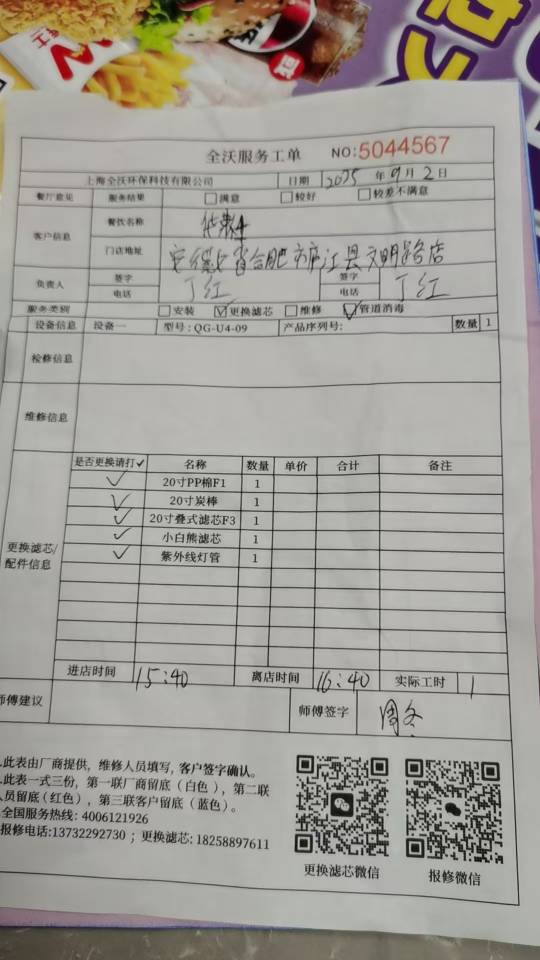 全沃服务工单 NO:5044567
上海全沃环保科技有限公司 日期 2025 年 9 月 2 日
餐厅意见 服务结果 □满意 □较好 □较差不满意
客户信息 餐饮名称 华莱士
门店地址 安徽省合肥市庐江县文明路店
负责人 签字 丁红 签字 丁红
电话 电话
服务类别 □安装 ☑更换滤芯 □维修 ☑管道消毒
设备信息 设备一 型号: QG-U4-09 产品序列号: 数量 1
检修信息
维修信息
更换滤芯/配件信息
是否更换请打✓ 名称 数量 单价 合计 备注
✓ 20寸PP棉F1 1
✓ 20寸炭棒 1
✓ 20寸叠式滤芯F3 1
✓ 小白熊滤芯 1
✓ 紫外线灯管 1
进店时间 15:40 离店时间 16:40 实际工时 1
师傅建议 师傅签字
.此表由厂商提供，维修人员填写, 客户签字确认。
.此表一式三份，第一联厂商留底（白色），第二联
人员留底（红色），第三联客户留底（蓝色）。
全国服务热线: 4006121926
报修电话:13732292730 ；更换滤芯: 18258897611
更换滤芯微信 报修微信